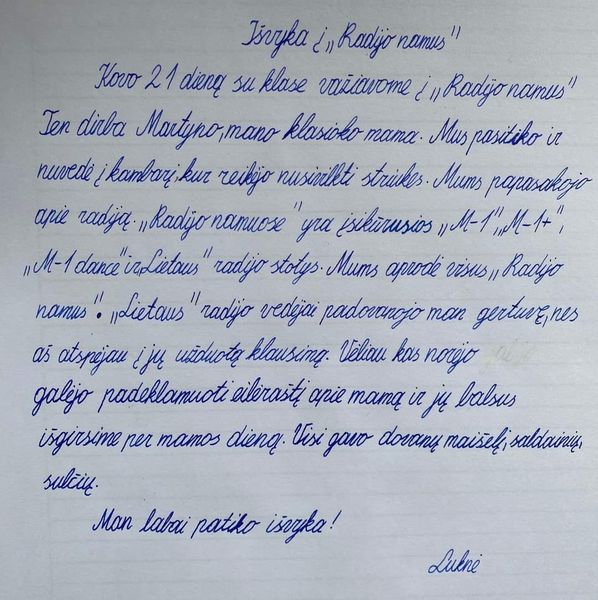 Išvyka į „Radijo namus"
Kovo 21 dieną su klase važiavome į „Radijo namus"
Ten dirba Martyno, mano klasioko mama. Mus pasitiko ir
nuvedė į kambarį, kur reikėjo nusivilkti striukes. Mums papasakojo
apie radiją. „Radijo namuose" yra įsikūrusios „M-1", „M-1+",
„M-1 dance" ir „Lietaus" radijo stotys. Mums aprodė visus „Radijo
namus". „Lietaus" radijo vedėjai padovanojo man gertuvę, nes
aš atspėjau į jų užduotą klausimą. Vėliau kas norėjo
galėjo padeklamuoti eilėraštį apie mamą ir jų balsus
išgirsime per mamos dieną. Visi gavo dovanų maišelį, saldainių,
sulčių.
Man labai patiko išvyka!
Luknė